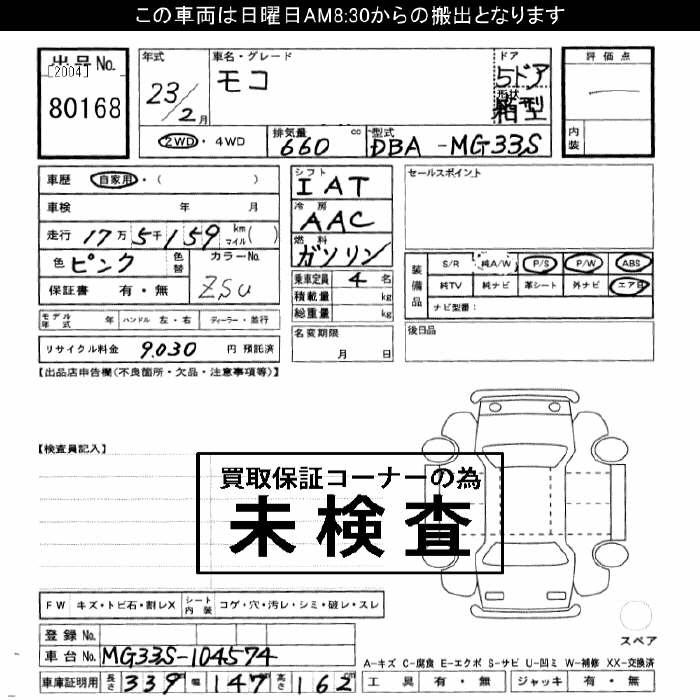 この車両は日曜日AM8:30からの搬出となります
出品No. [2004] 80168
年式 23/2月
車名・グレード モコ
ドア 5ドア
形状 箱型
評価点
内装
2WD・4WD
排気量 660 cc
型式 DBA-MG33S
車歴 自家用・( )
車検 年 月
走行 17万5千159 km マイル ( )
色 ピンク 色替 カラーNo. ZSU
保証書 有・無
シフト IAT
冷房 AAC
燃料 ガソリン
乗車定員 4 名
積載量 kg
総重量 kg
セールスポイント
装備品 S/R 純A/W P/S P/W ABS
純TV 純ナビ 革シート 外ナビ エアB
ナビ型番:
モデル年式 年 ハンドル 左・右 ディーラー・並行
リサイクル料金 9,030 円 預託済
名変期限 月 日
後日品
【出品店申告欄(不良箇所・欠品・注意事項等)】
【検査員記入】
買取保証コーナーの為
未検査
FW キズ・トビ石・割レX シート内装 コゲ・穴・汚レ・シミ・破レ・スレ
スペア
登録No.
車台No. MG33S-104574
A-キズ C-腐食 E-エクボ S-サビ U-凹ミ W-補修 XX-交換済
車庫証明用 長さ 339 幅 147 高さ 162 cm
工具 有・無 ジャッキ 有・無